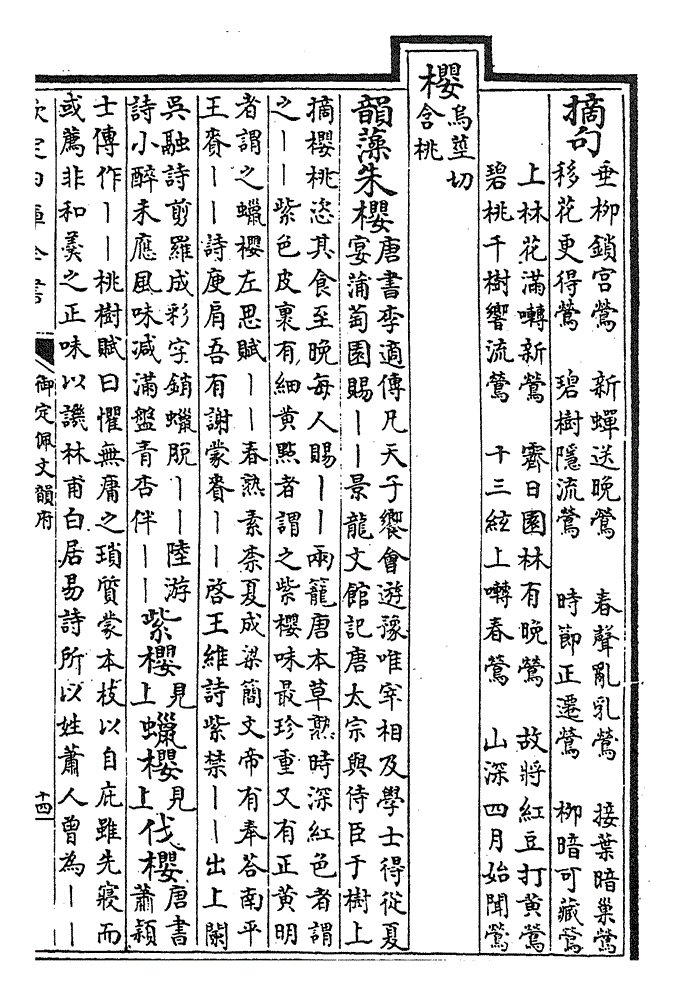 摘句
垂栁鎖宫鶯　新蟬送晚鶯　春聲亂乳鶯　接葉暗巢鶯
移花更得鶯　碧樹隱流鶯　時節正遷鶯　栁暗可藏鶯
上林花滿囀新鶯　霽日園林有晚鶯　故將紅豆打黄鶯
碧桃千樹響流鶯　十三絃上囀春鶯　山深四月始聞鶯
櫻
烏莖切
含桃
韻藻朱櫻
唐書李適傳凡天子饗會遊豫唯宰相及學士得從夏
宴蒲萄園賜||景龍文館記唐太宗與侍臣于樹上
摘櫻桃恣其食至晚每人賜||兩籠唐本草熟時深紅色者謂
之||紫色皮裏有細黄點者謂之紫櫻味最珍重又有正黄明
者謂之蠟櫻左思賦||春熟素柰夏成梁簡文帝有奉答南平
王賚||詩庾肩吾有謝蒙賚||啓王維詩紫禁||出上闌
吳融詩剪羅成彩字銷蠟脫||陸游
詩小醉未應風味減滿盤青杏伴||
紫櫻
見上
蠟櫻
見上
伐櫻
唐書
蕭穎
士傳作||桃樹賦曰懼無庸之瑣質蒙本枝以自庇雖先寢而
或薦非和羹之正味以譏林甫白居易詩所以姓蕭人曾為||
欽定四庫全書
御定佩文韻府
十四